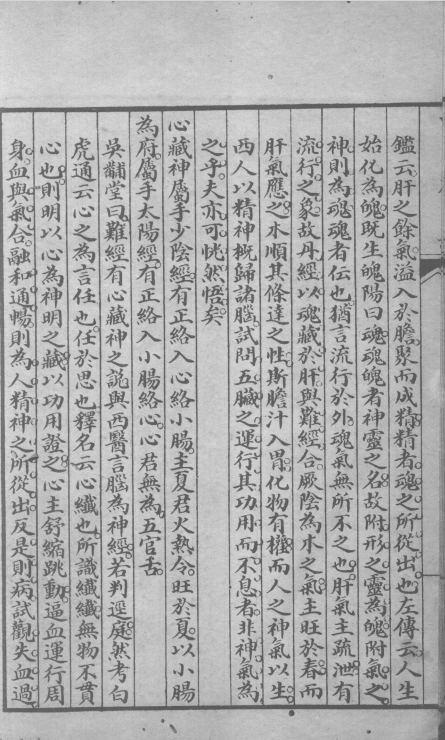 鑑云肝之餘氣溢入於膽聚而成精精者魂之所從出也左傳云人生
始化為魄既生魄陽曰魂魂魄者神靈之名故附形之靈為魄附氣之
神則為魂魂者伝也猶言流行於外魂氣無所不之也肝氣主疏泄有
流行之象故丹經以魂藏於肝與難經合厥陰為木之氣主旺於春而
肝氣應之木順其條達之性斯膽汁入胃化物有權而人之神氣以生
西人以精神概歸諸腦試問五臟之運行其功用而不息者非神氣為
之乎夫亦可恍然悟矣
心藏神屬手少陰經有正絡入心絡小腸主夏君火熱令旺於夏以小腸
為府屬手太陽經有正絡入小腸絡心心君無為五官舌
吳黼堂曰難經有心藏神之說與西醫言腦為神經若判逕庭然考白
虎通云心之為言任也任於思也釋名云心纖也所識纖纖無物不貫
心也則明以心為神明之藏以功用證之心主舒縮跳動逼血運行周
身血與氣合融和通暢則為人精神之所從出反是則病試觀失血過